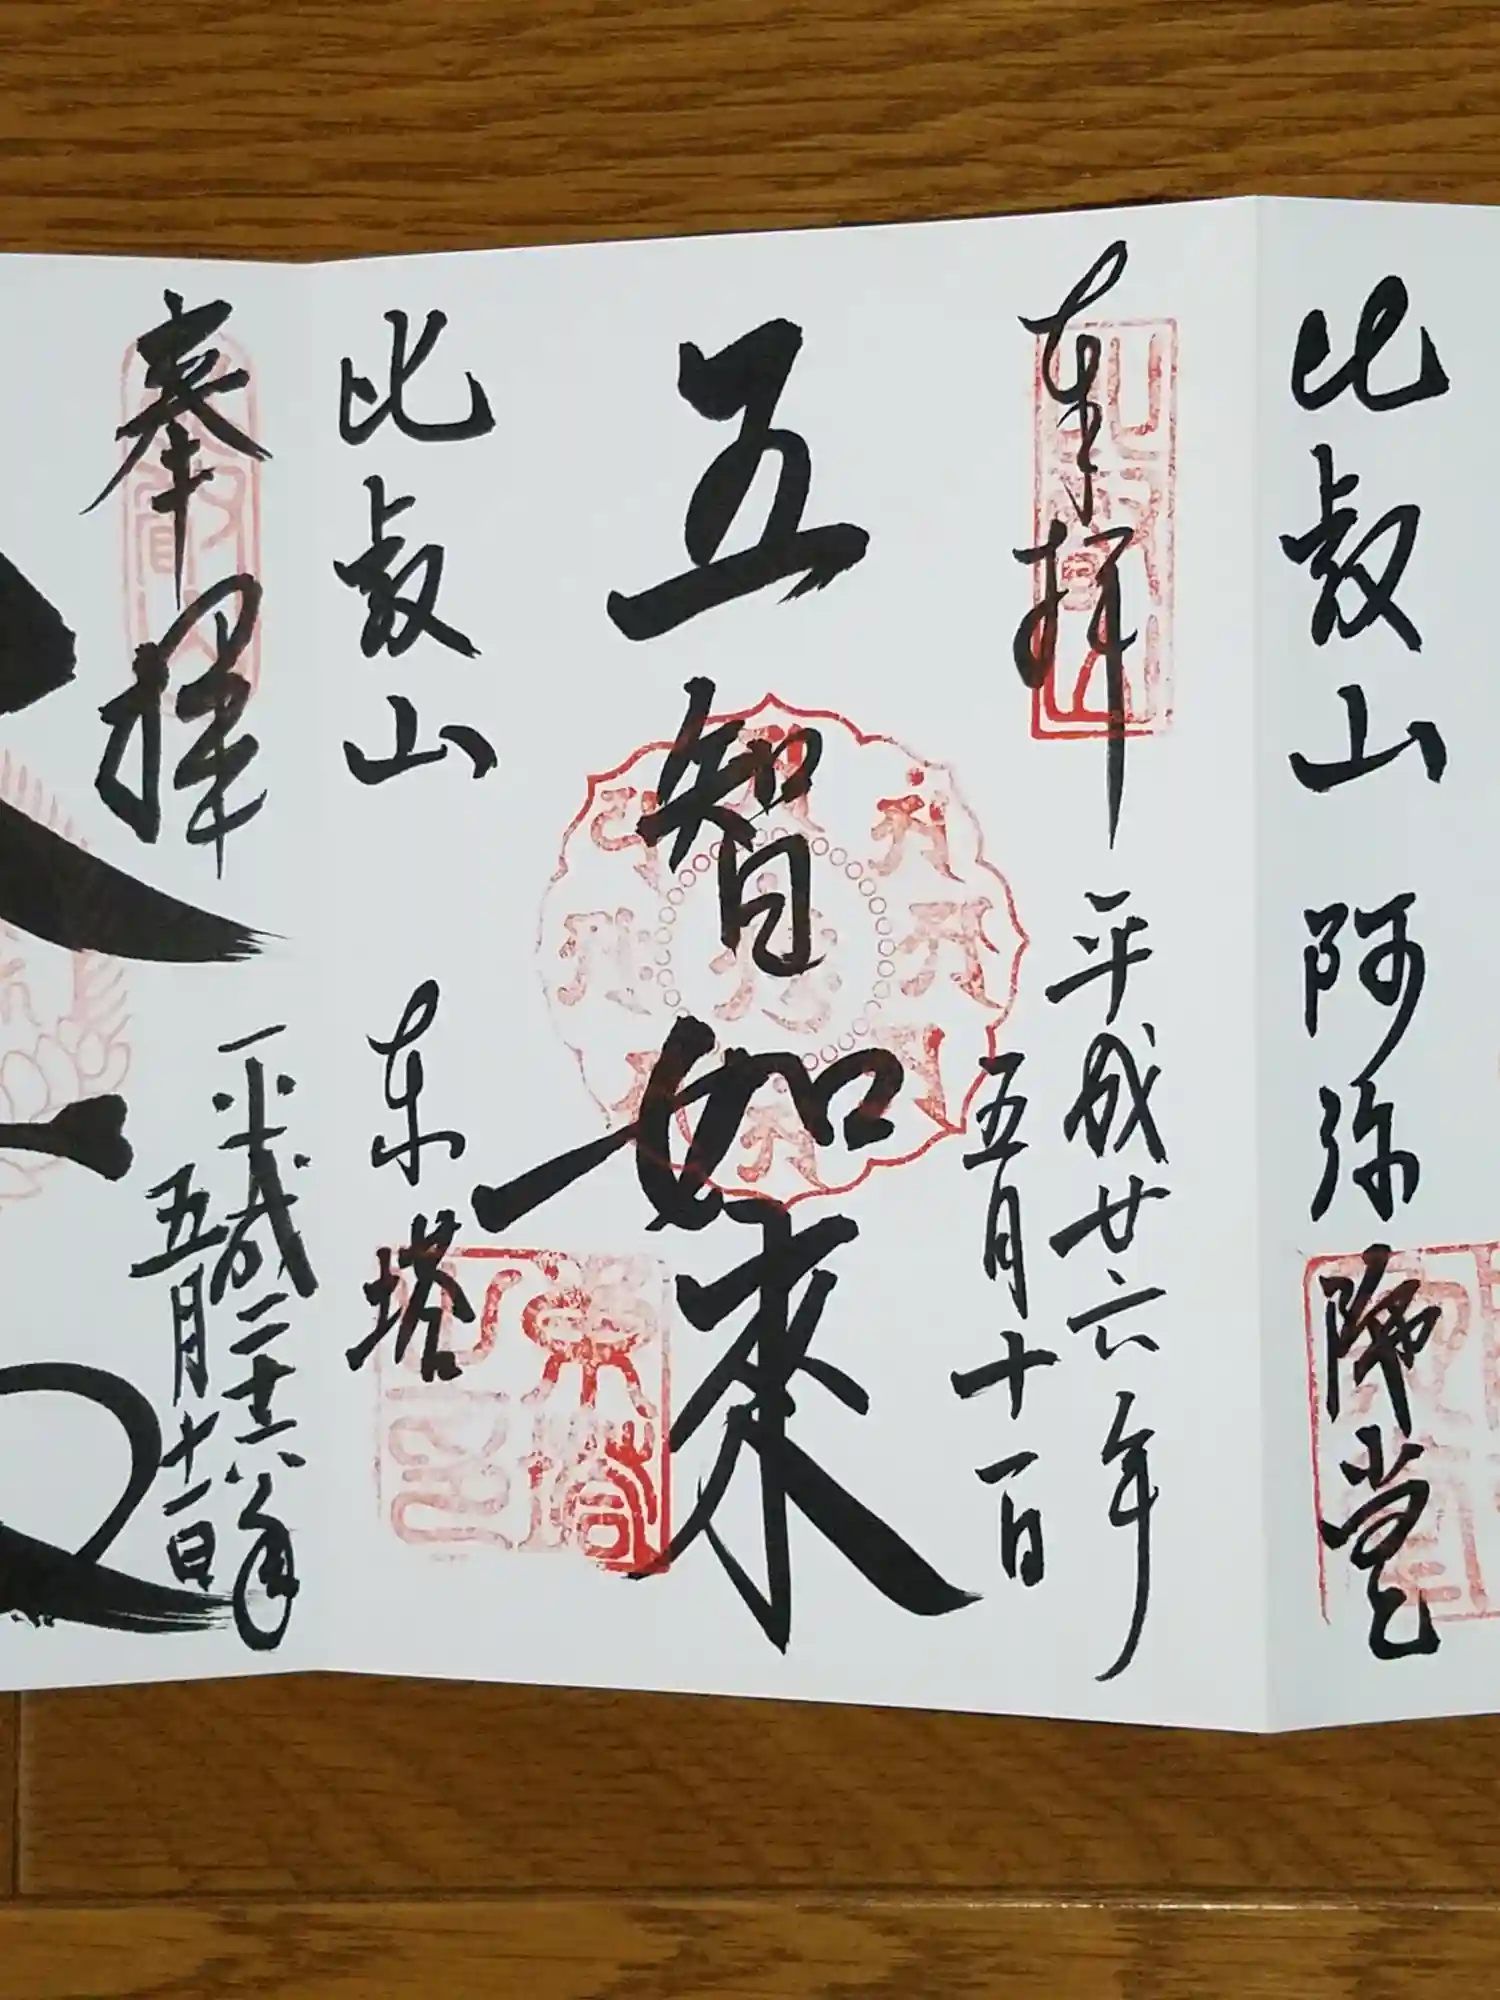 比叡山 阿弥陀堂
奉拝 平成廿六年
五月十一日
五智如来
比叡山 東塔
奉拝 平成二十六年
五月十一日